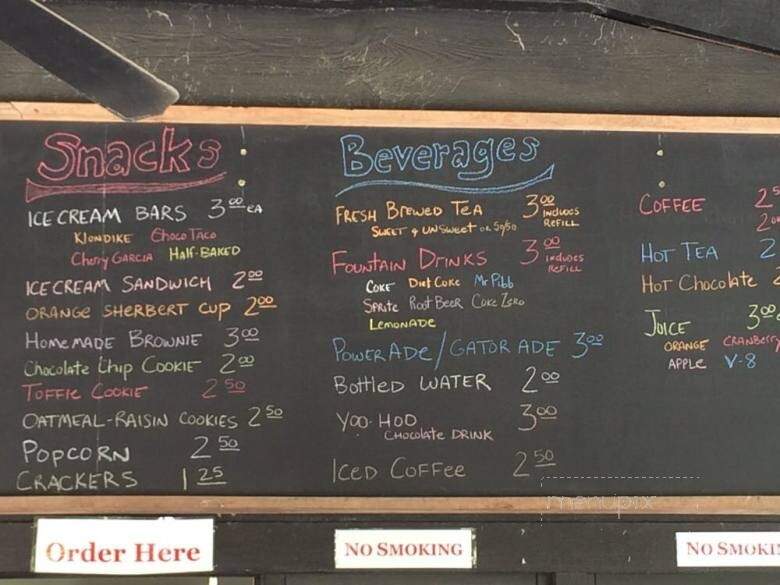 Snacks
ICE CREAM BARS 3.00 EA
KLONDIKE Choco Taco
Cherry GARCIA Half-BAKED
ICE CREAM SANDWICH 2.00
ORANGE SHERBERT CUP 2.00
HOMEMADE BROWNIE 3.00
Chocolate Chip COOKIE 2.00
TOFFIE COOKIE 2.50
OATMEAL-RAISIN COOKIES 2.50
POPCORN 2.50
CRACKERS 1.25
Beverages
FRESH BREWED TEA 3.00 INCLUDES REFILL
SWEET & UNSWEET OR 50/50
FOUNTAIN DRINKS 3.00 INCLUDES REFILL
COKE DIET COKE Mr Pibb
Sprite Root Beer Coke Zero
LEMONADE
POWERADE/GATORADE 3.00
BOTTLED WATER 2.00
YOO-HOO 3.00
Chocolate DRINK
ICED COFFEE 2.50
COFFEE
HOT TEA
HOT Chocolate
JUICE 3.00
ORANGE CRANBERRY
APPLE V-8
menupix
Order Here
NO SMOKING
NO SMOKIN